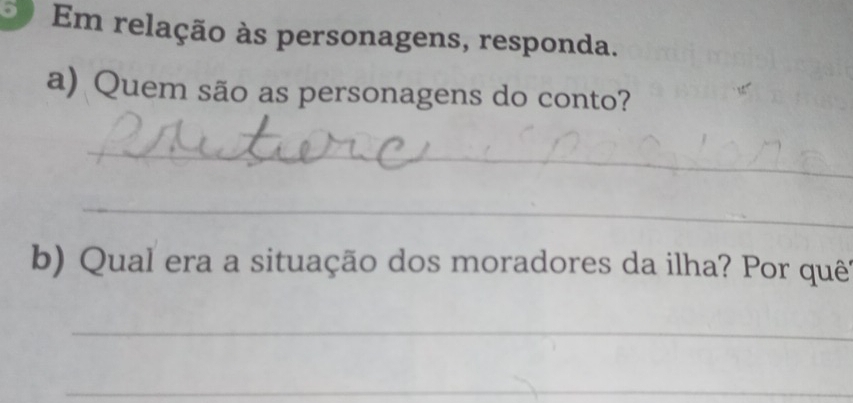 6 Em relação às personagens, responda.
a) Quem são as personagens do conto?
b) Qual era a situação dos moradores da ilha? Por quê